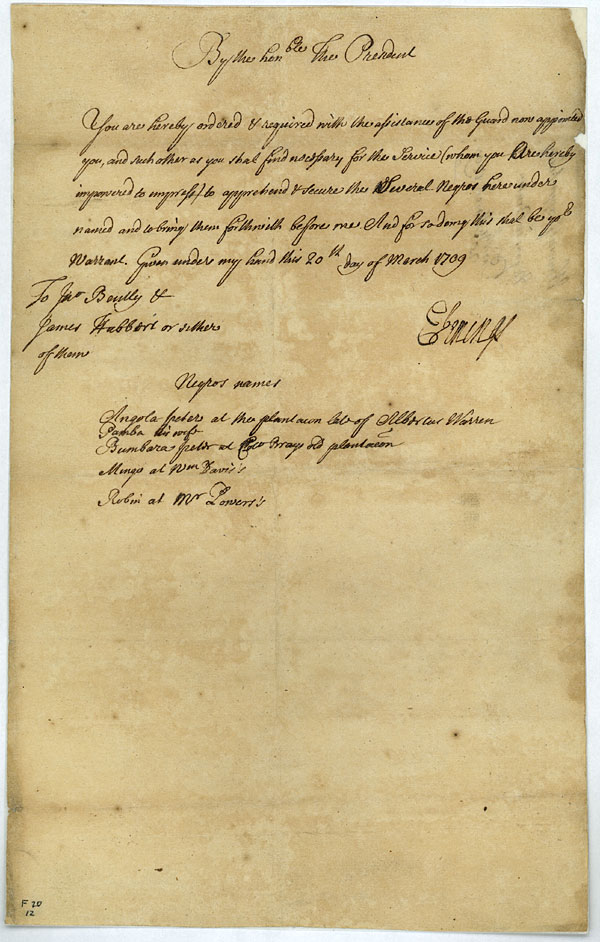 By the hon ble The President
You are hereby ordered & required with the assistance of the Guard now appointed
you, and such other as you shal find necessary for the Service (whom you are hereby
impowered to impress) to apprehend & secure the Several Negros here under
named and to bring them forthwith before me And for so doing this shal be yo r
Warrant. Given under my hand this 20 th day of March 1709
To Jno Bently &
James Hubbert or either
of them
E Jenings
Negros names
Angola Peter at the plantacon late of Albertus Warren
Pamba his wife
Bumbara Peter at Colo Brays old plantacon
Mingo at Wm Davis's
Robin at Mr Powers's
F 20
12